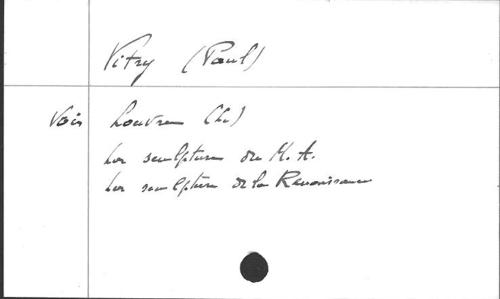 Vitry (Paul)
Voir Louvre (Le)
La sculpture du M. A.
La sculpture de la Renaissance